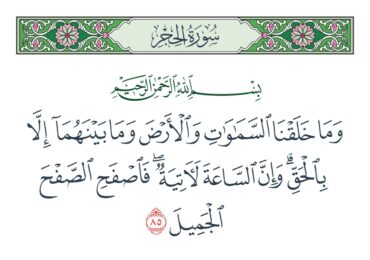 سُورَةُ الحِجْرِ
بِسْمِ ٱللَّهِ ٱلرَّحْمَٰنِ ٱلرَّحِيمِ
وَمَا خَلَقْنَا ٱلسَّمَٰوَٰتِ وَٱلْأَرْضَ وَمَا بَيْنَهُمَآ إِلَّا
بِٱلْحَقِّ ۗ وَإِنَّ ٱلسَّاعَةَ لَءَاتِيَةٌ ۖ فَٱصْفَحِ ٱلصَّفْحَ
ٱلْجَمِيلَ ٨٥